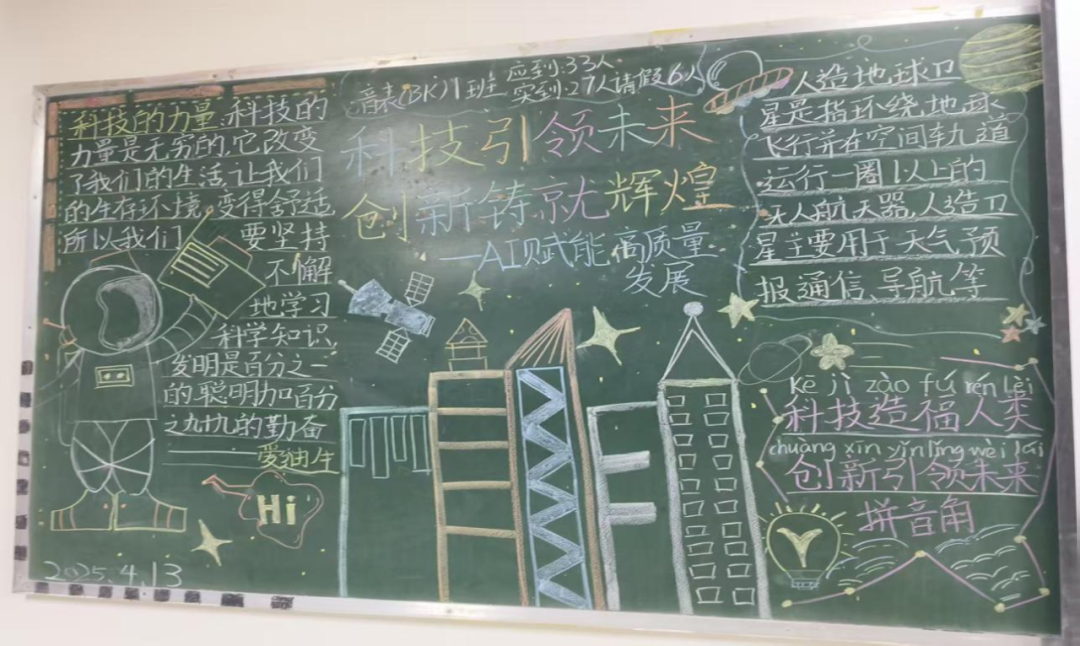 科技的力量:科技的
力量是无穷的,它改变
了我们的生活,让我们
的生存环境,变得舒适
所以我们 要坚持
不懈
地学习
科学知识,
发明是百分之一
的聪明加百分
之九十九的勤奋
——爱迪生
Hi
2025.4.13
(BK)1班 应到:33人
实到:27人请假6人
科技引领未来
创新铸就辉煌
—AI赋能,高质量
发展
人造地球卫
星是指环绕地球
飞行并在空间轨道
运行一圈以上的
无人航天器,人造卫
星主要用于天气预
报通信、导航等
Kē jì zào fú rén lèi
科技造福人类
chuàng xīn yǐn lǐng wèi lái
创新引领未来
拼音角